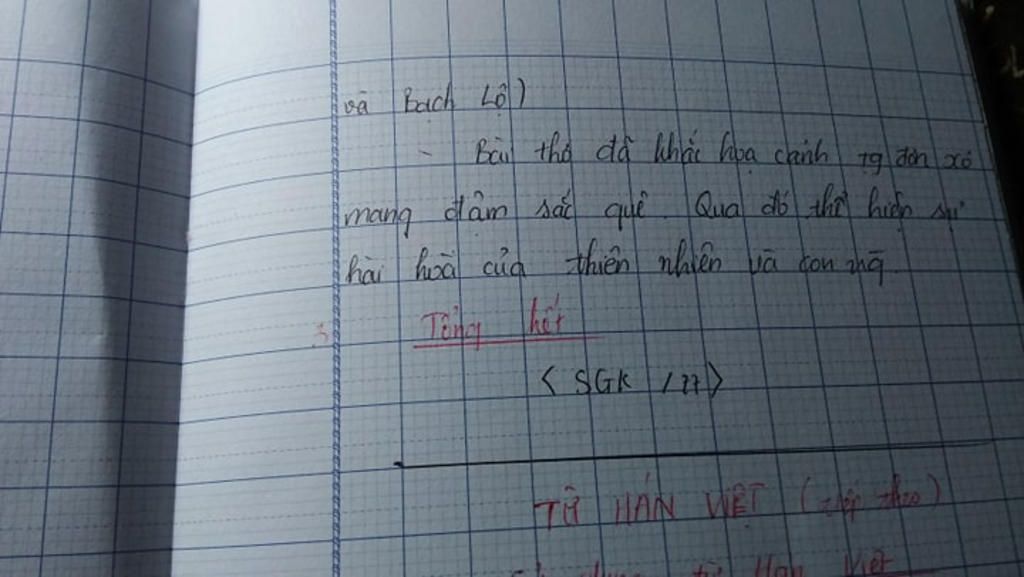 và Bạch Lộ)
- Bài thơ đã khắc họa cảnh tg đơn xơ
mang đậm sắc quê. Qua đó thể hiện sự
hài hoà của thiên nhiên và con ng
3. Tổng kết
< SGK / 77>
TỪ HÁN VIỆT (tiếp theo)
dụng từ Hán Việt